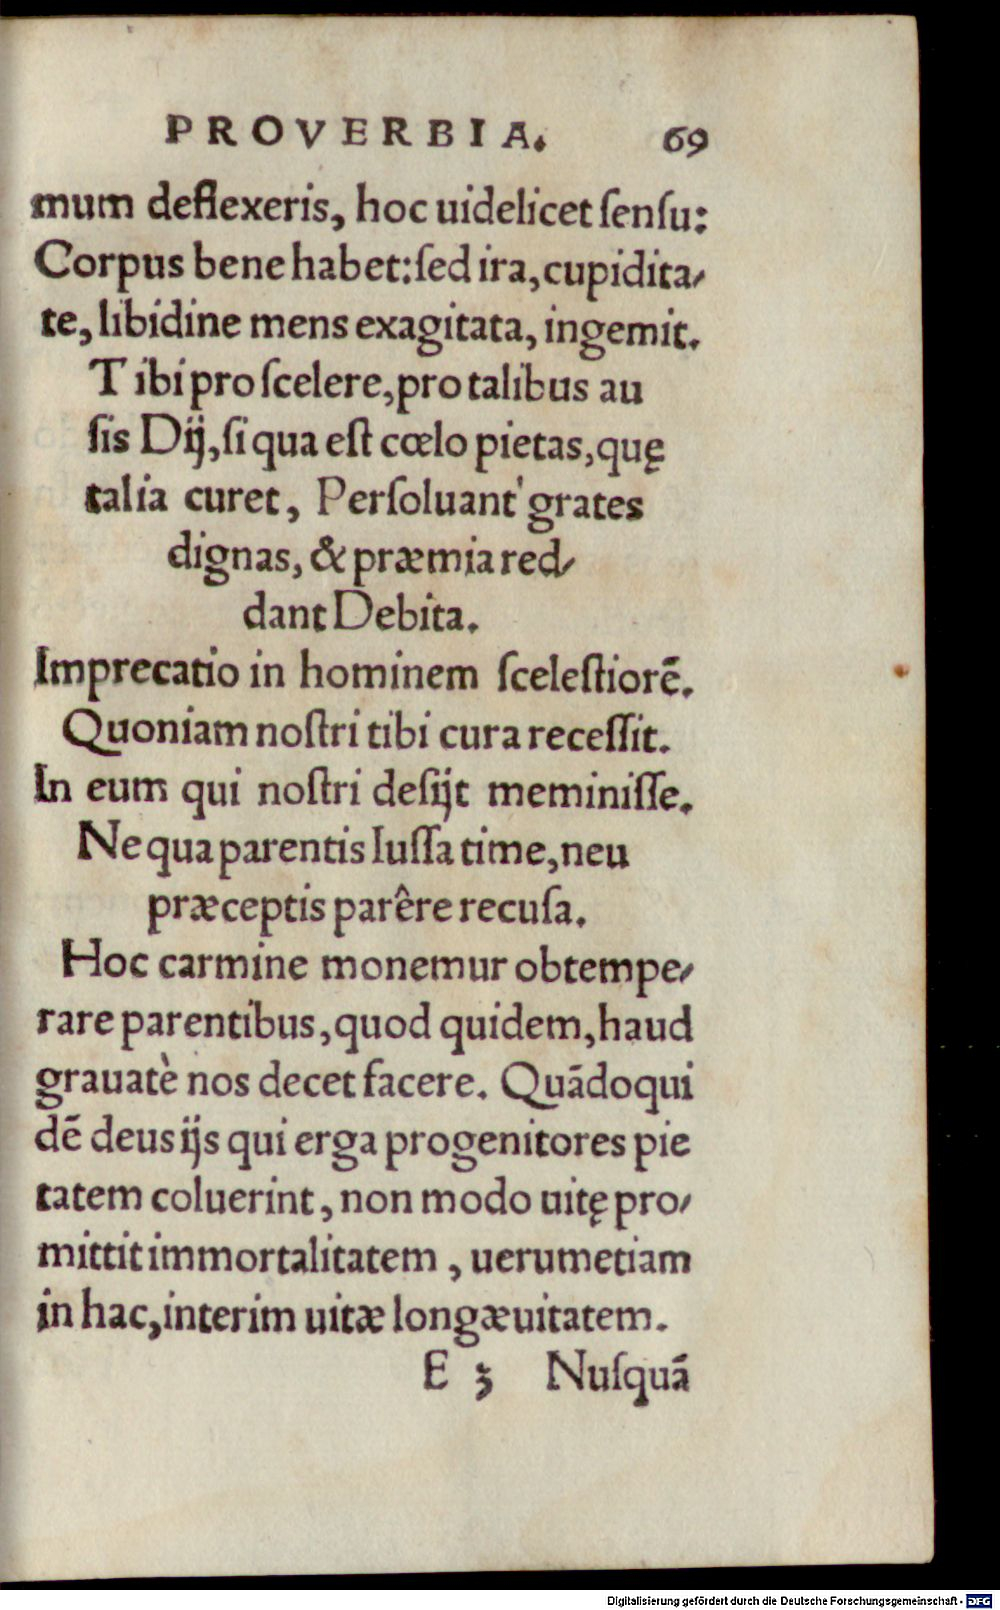 PROVERBIA. 69
mum deflexeris, hoc uidelicet ſenſu:
Corpus bene habet: ſed ira, cupidita⸗
te, libidine mens exagitata, ingemit.
Tibi pro ſcelere, pro talibus au
ſis Dij, ſi qua eſt cœlo pietas, quę
talia curet, Perſoluant grates
dignas, & præmia red⸗
dant Debita.
Imprecatio in hominem ſceleſtiorẽ.
Quoniam noſtri tibi cura receſſit.
In eum qui noſtri deſijt meminiſſe.
Ne qua parentis Iuſſa time, neu
præceptis parêre recuſa.
Hoc carmine monemur obtempe⸗
rare parentibus, quod quidem, haud
grauatè nos decet facere. Quãdoqui
dẽ deus ijs qui erga progenitores pie
tatem coluerint, non modo uitę pro⸗
mittit immortalitatem, uerumetiam
in hac, interim uitæ longæuitatem.
E 3 Nuſquã
Digitalisierung gefördert durch die Deutsche Forschungsgemeinschaft - DFG